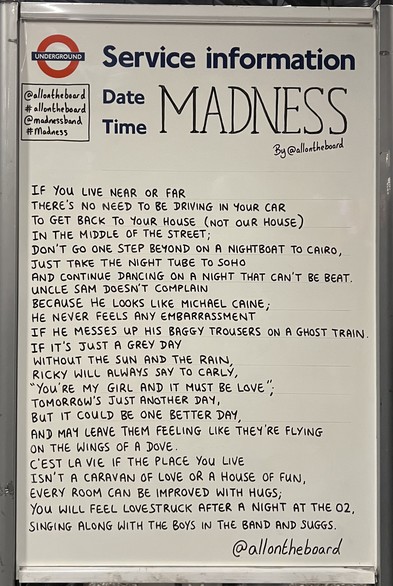 UNDERGROUND
Service information
@allontheboard
#allontheboard
@madnessband
#Madness
Date
Time
MADNESS
By @allontheboard
IF YOU LIVE NEAR OR FAR
THERE'S NO NEED TO BE DRIVING IN YOUR CAR
TO GET BACK TO YOUR HOUSE (NOT OUR HOUSE)
IN THE MIDDLE OF THE STREET;
DON'T GO ONE STEP BEYOND ON A NIGHTBOAT TO CAIRO,
JUST TAKE THE NIGHT TUBE TO SOHO
AND CONTINUE DANCING ON A NIGHT THAT CAN'T BE BEAT.
UNCLE SAM DOESN'T COMPLAIN
BECAUSE HE LOOKS LIKE MICHAEL CAINE;
HE NEVER FEELS ANY EMBARRASSMENT
IF HE MESSES UP HIS BAGGY TROUSERS ON A GHOST TRAIN.
IF IT'S JUST A GREY DAY
WITHOUT THE SUN AND THE RAIN,
RICKY WILL ALWAYS SAY TO CARLY,
"YOU'RE MY GIRL AND IT MUST BE LOVE";
TOMORROW'S JUST ANOTHER DAY,
BUT IT COULD BE ONE BETTER DAY,
AND MAY LEAVE THEM FEELING LIKE THEY'RE FLYING
ON THE WINGS OF A DOVE.
C'EST LA VIE IF THE PLACE YOU LIVE
ISN'T A CARAVAN OF LOVE OR A HOUSE OF FUN,
EVERY ROOM CAN BE IMPROVED WITH HUGS;
YOU WILL FEEL LOVESTRUCK AFTER A NIGHT AT THE O2,
SINGING ALONG WITH THE BOYS IN THE BAND AND SUGGS.
@allontheboard